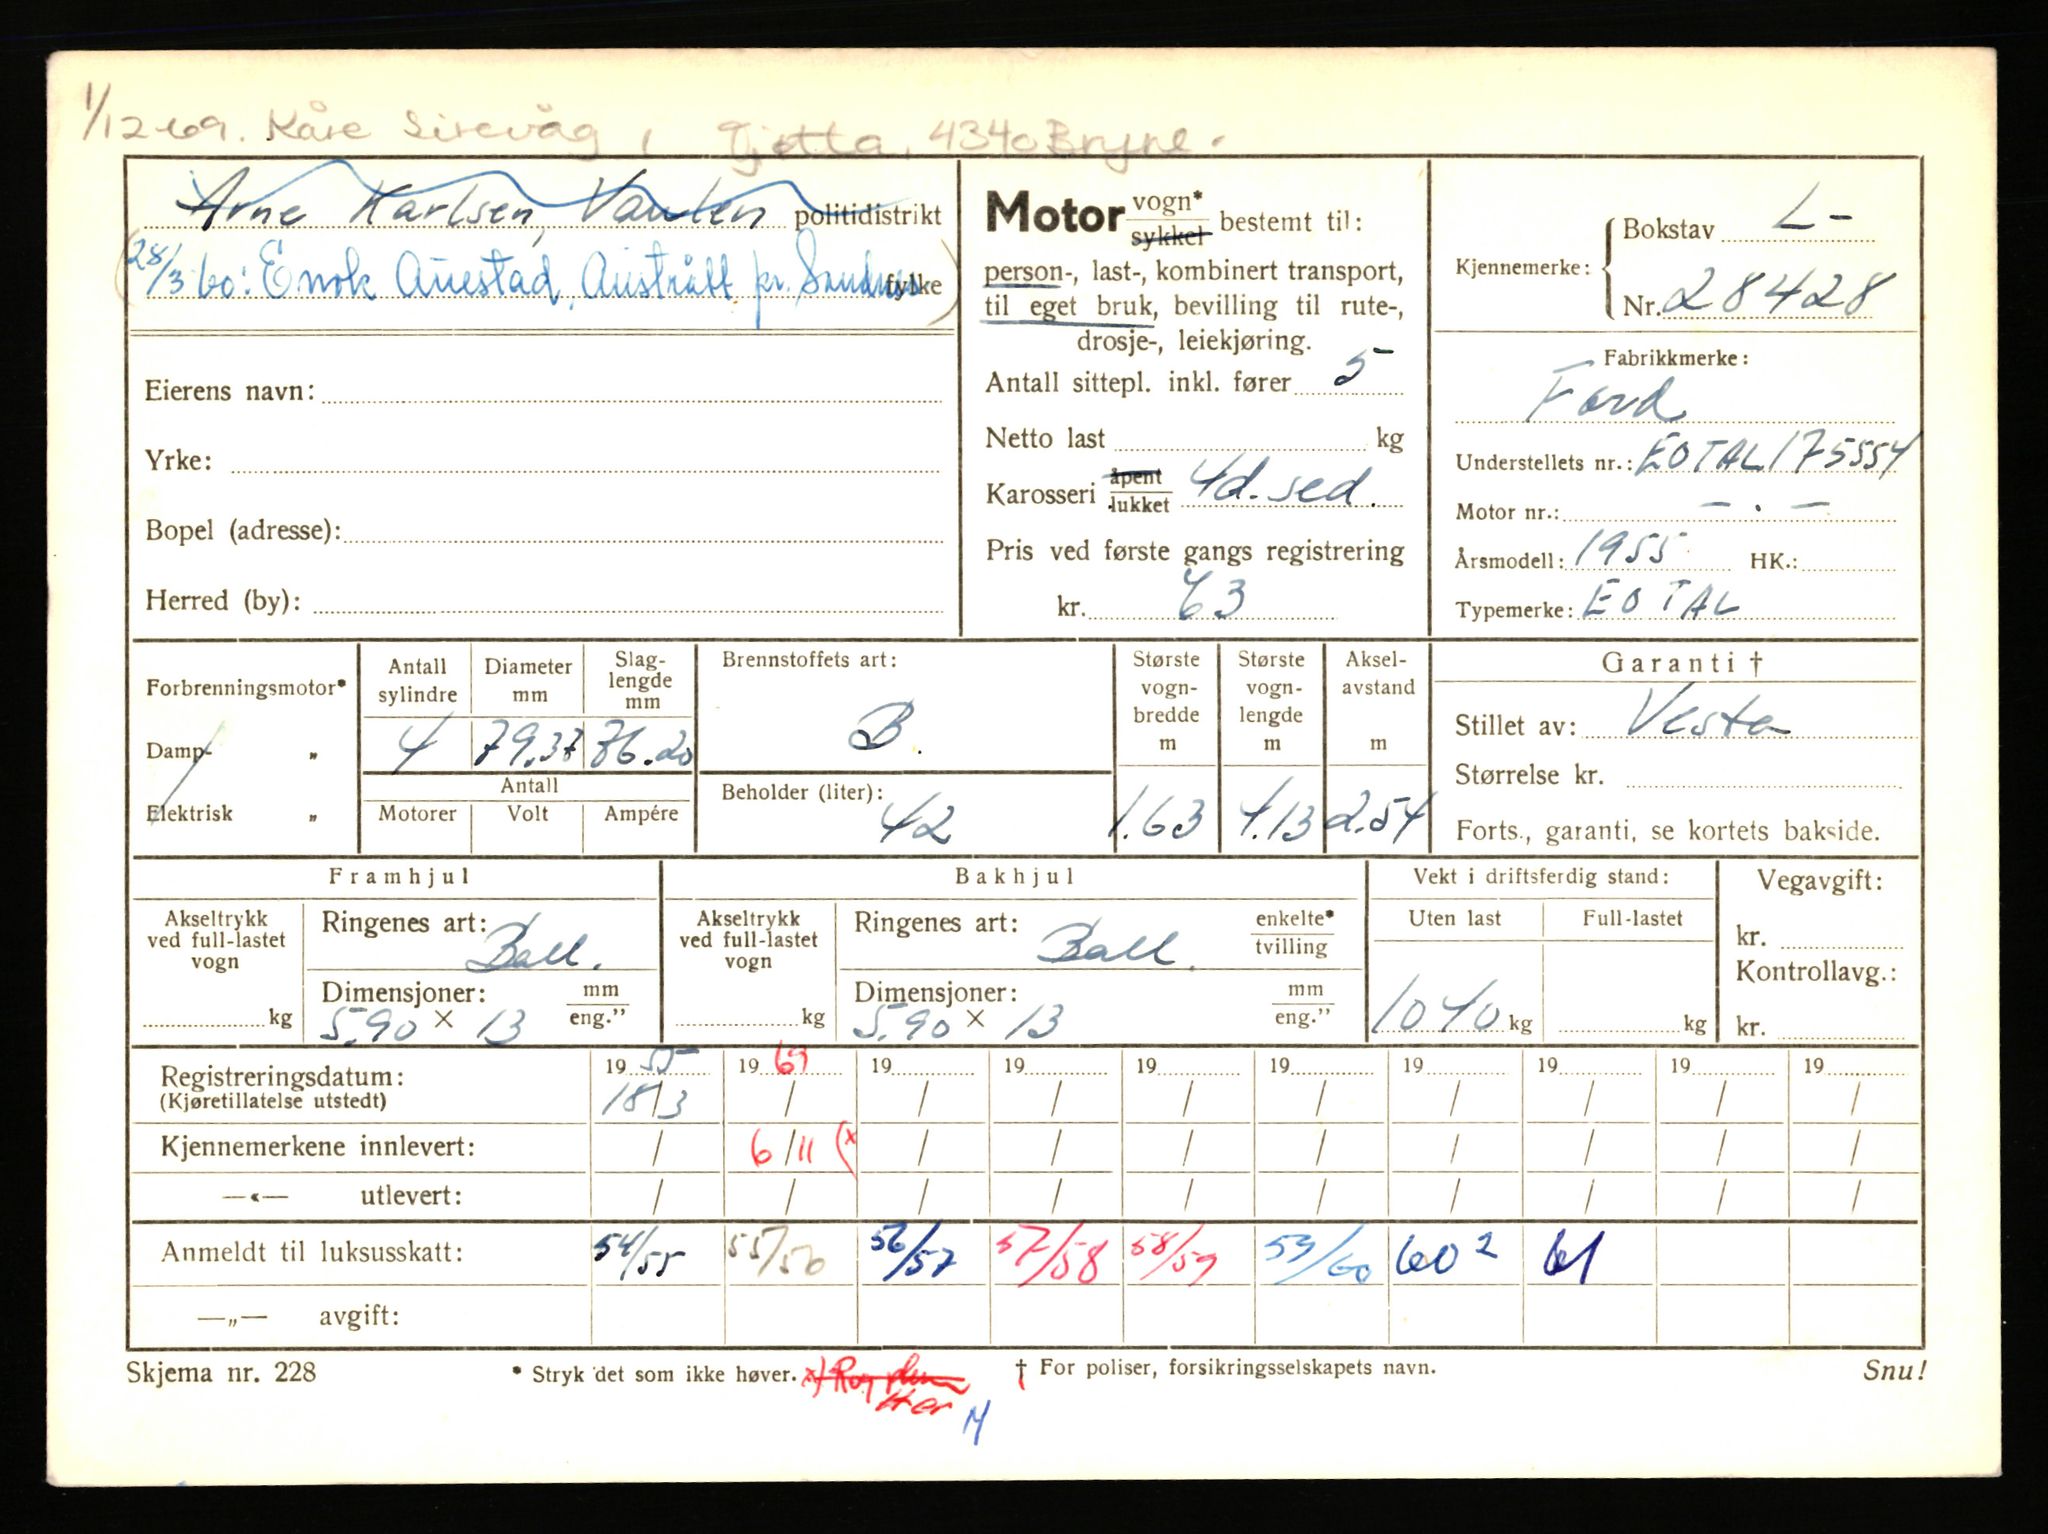 1/12-69. Kåre Sirevåg, Tjøtta, 4340 Bryne.
Arne Karlsen, Vaulen politidistrikt
(28/3 60: Enok Auestad, Austrått pr. Sandnes fylke)
Eierens navn:
Yrke:
Bopel (adresse):
Herred (by):
Motor vogn* / sykkel bestemt til:
person-, last-, kombinert transport,
til eget bruk, bevilling til rute-,
drosje-, leiekjøring.
Antall sittepl. inkl. fører 5
Netto last kg
Karosseri åpent / lukket 4d. sed.
Pris ved første gangs registrering
kr. 63
Kjennemerke: Bokstav L-
Nr. 28428
Fabrikkmerke:
Ford
Understellets nr.: EOTAL 175554
Motor nr.: - . -
Årsmodell: 1955 HK.:
Typemerke: EOTAL
Forbrenningsmotor*
Damp- „
Elektrisk „
Antall sylindre 4
Diameter mm 79.37
Slaglengde mm 76.20
Antall
Motorer Volt Ampére
Brennstoffets art:
B.
Beholder (liter):
42
Største vognbredde m 1.63
Største vognlengde m 4.13
Akselavstand m 2.54
Garanti †
Stillet av: Vesta
Størrelse kr.
Forts., garanti, se kortets bakside.
Framhjul
Akseltrykk ved full-lastet vogn kg
Ringenes art: Ball.
Dimensjoner: mm / eng."
5.90 × 13
Bakhjul
Akseltrykk ved full-lastet vogn kg
Ringenes art: Ball. enkelte* / tvilling
Dimensjoner: mm / eng."
5.90 × 13
Vekt i driftsferdig stand:
Uten last Full-lastet
1040 kg kg
Vegavgift:
kr.
Kontrollavg.:
kr.
Registreringsdatum: 19 55 19 69 19 19 19 19 19 19 19 19
(Kjøretillatelse utstedt) 18/3 / / / / / / / / /
Kjennemerkene innlevert: / 6/11 (x / / / / / / / /
—«— utlevert: / / / / / / / / / /
Anmeldt til luksusskatt: 54/55 55/56 56/57 57/58 58/59 59/60 60² 61
—„— avgift:
Skjema nr. 228 * Stryk det som ikke høver. x) † For poliser, forsikringsselskapets navn. Snu!